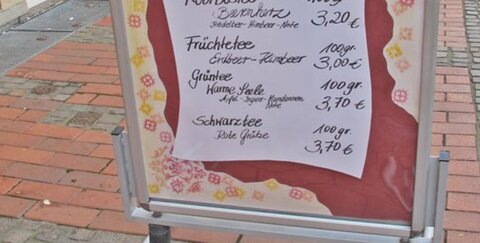 Rooibostee 100gr.
Bärenherz 3,20 €
Heidelbeer-Himbeer-Note
Früchtetee 100gr.
Erdbeer-Himbeer 3,00 €
Grüntee
Warme Seele 100gr.
Apfel-Ingwer-Mandarinen 3,70 €
Note
Schwarztee 100gr.
Rote Grütze 3,70 €